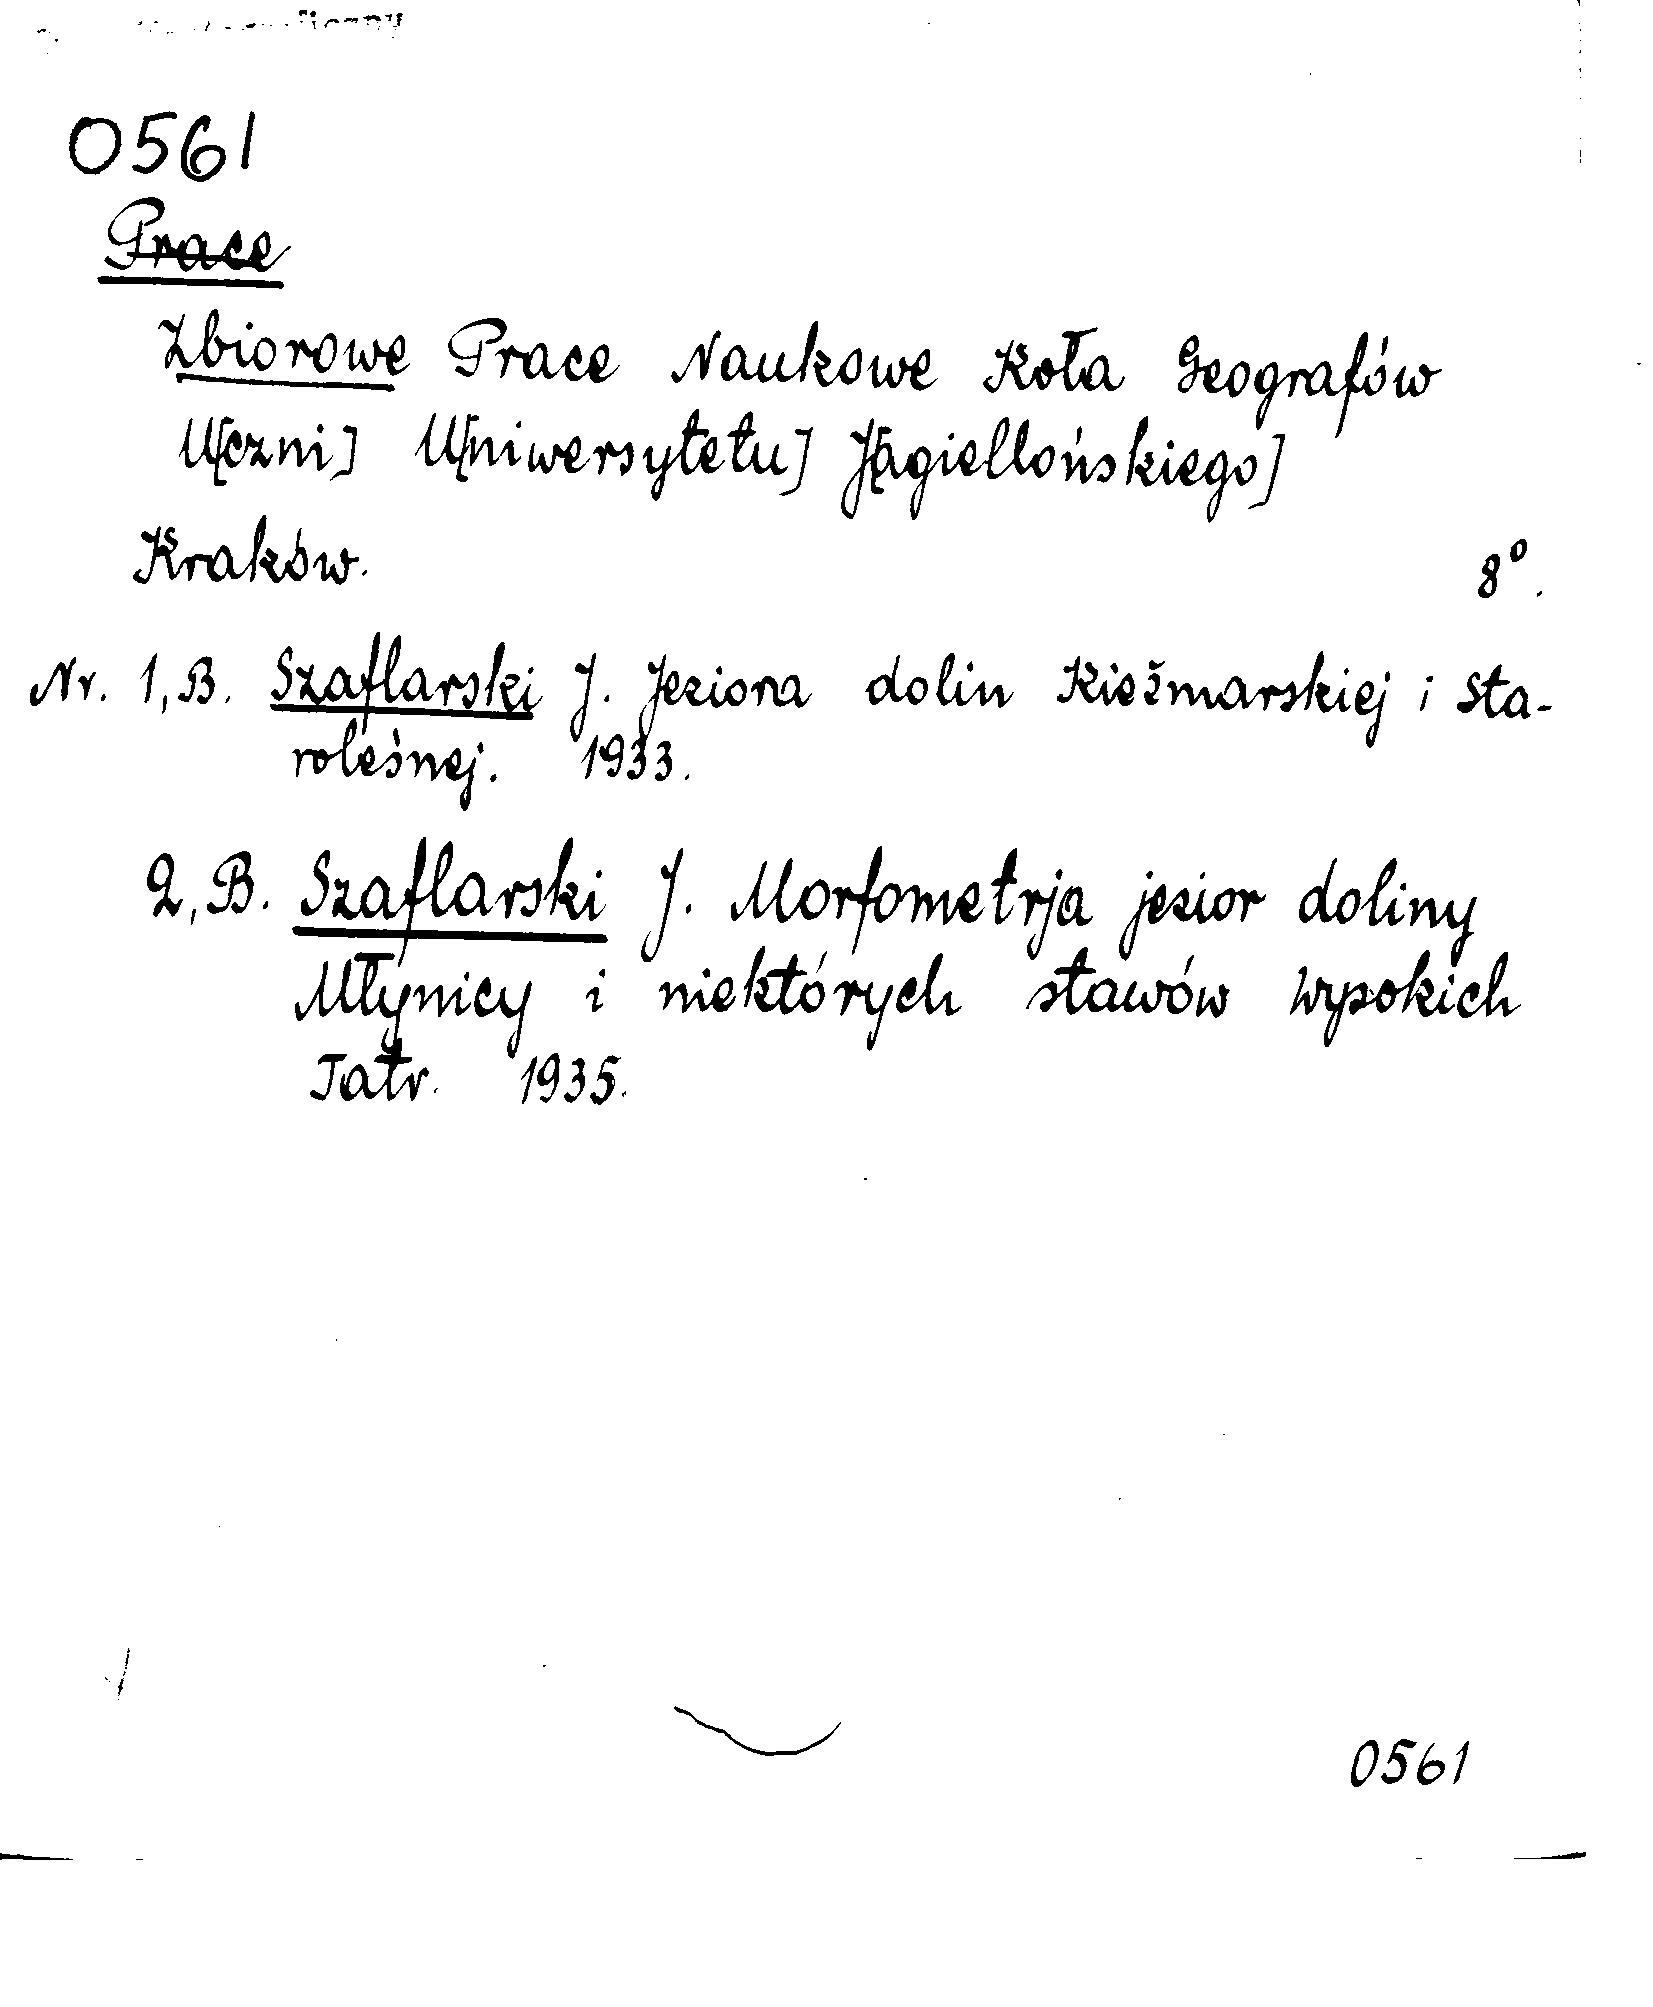 0561
Prace
Zbiorowe Prace Naukowe Koła Geografów
U[czni] U[niwersytetu] J[agiellońskiego]
Kraków. 8°.
Nr. 1,B. Szaflarski J. Jeziora dolin Kieżmarskiej i Sta-
roleśnej. 1933.
2,B. Szaflarski J. Morfometrja jezior doliny
Młynicy i niektórych stawów Wysokich
Tatr. 1935.
0561